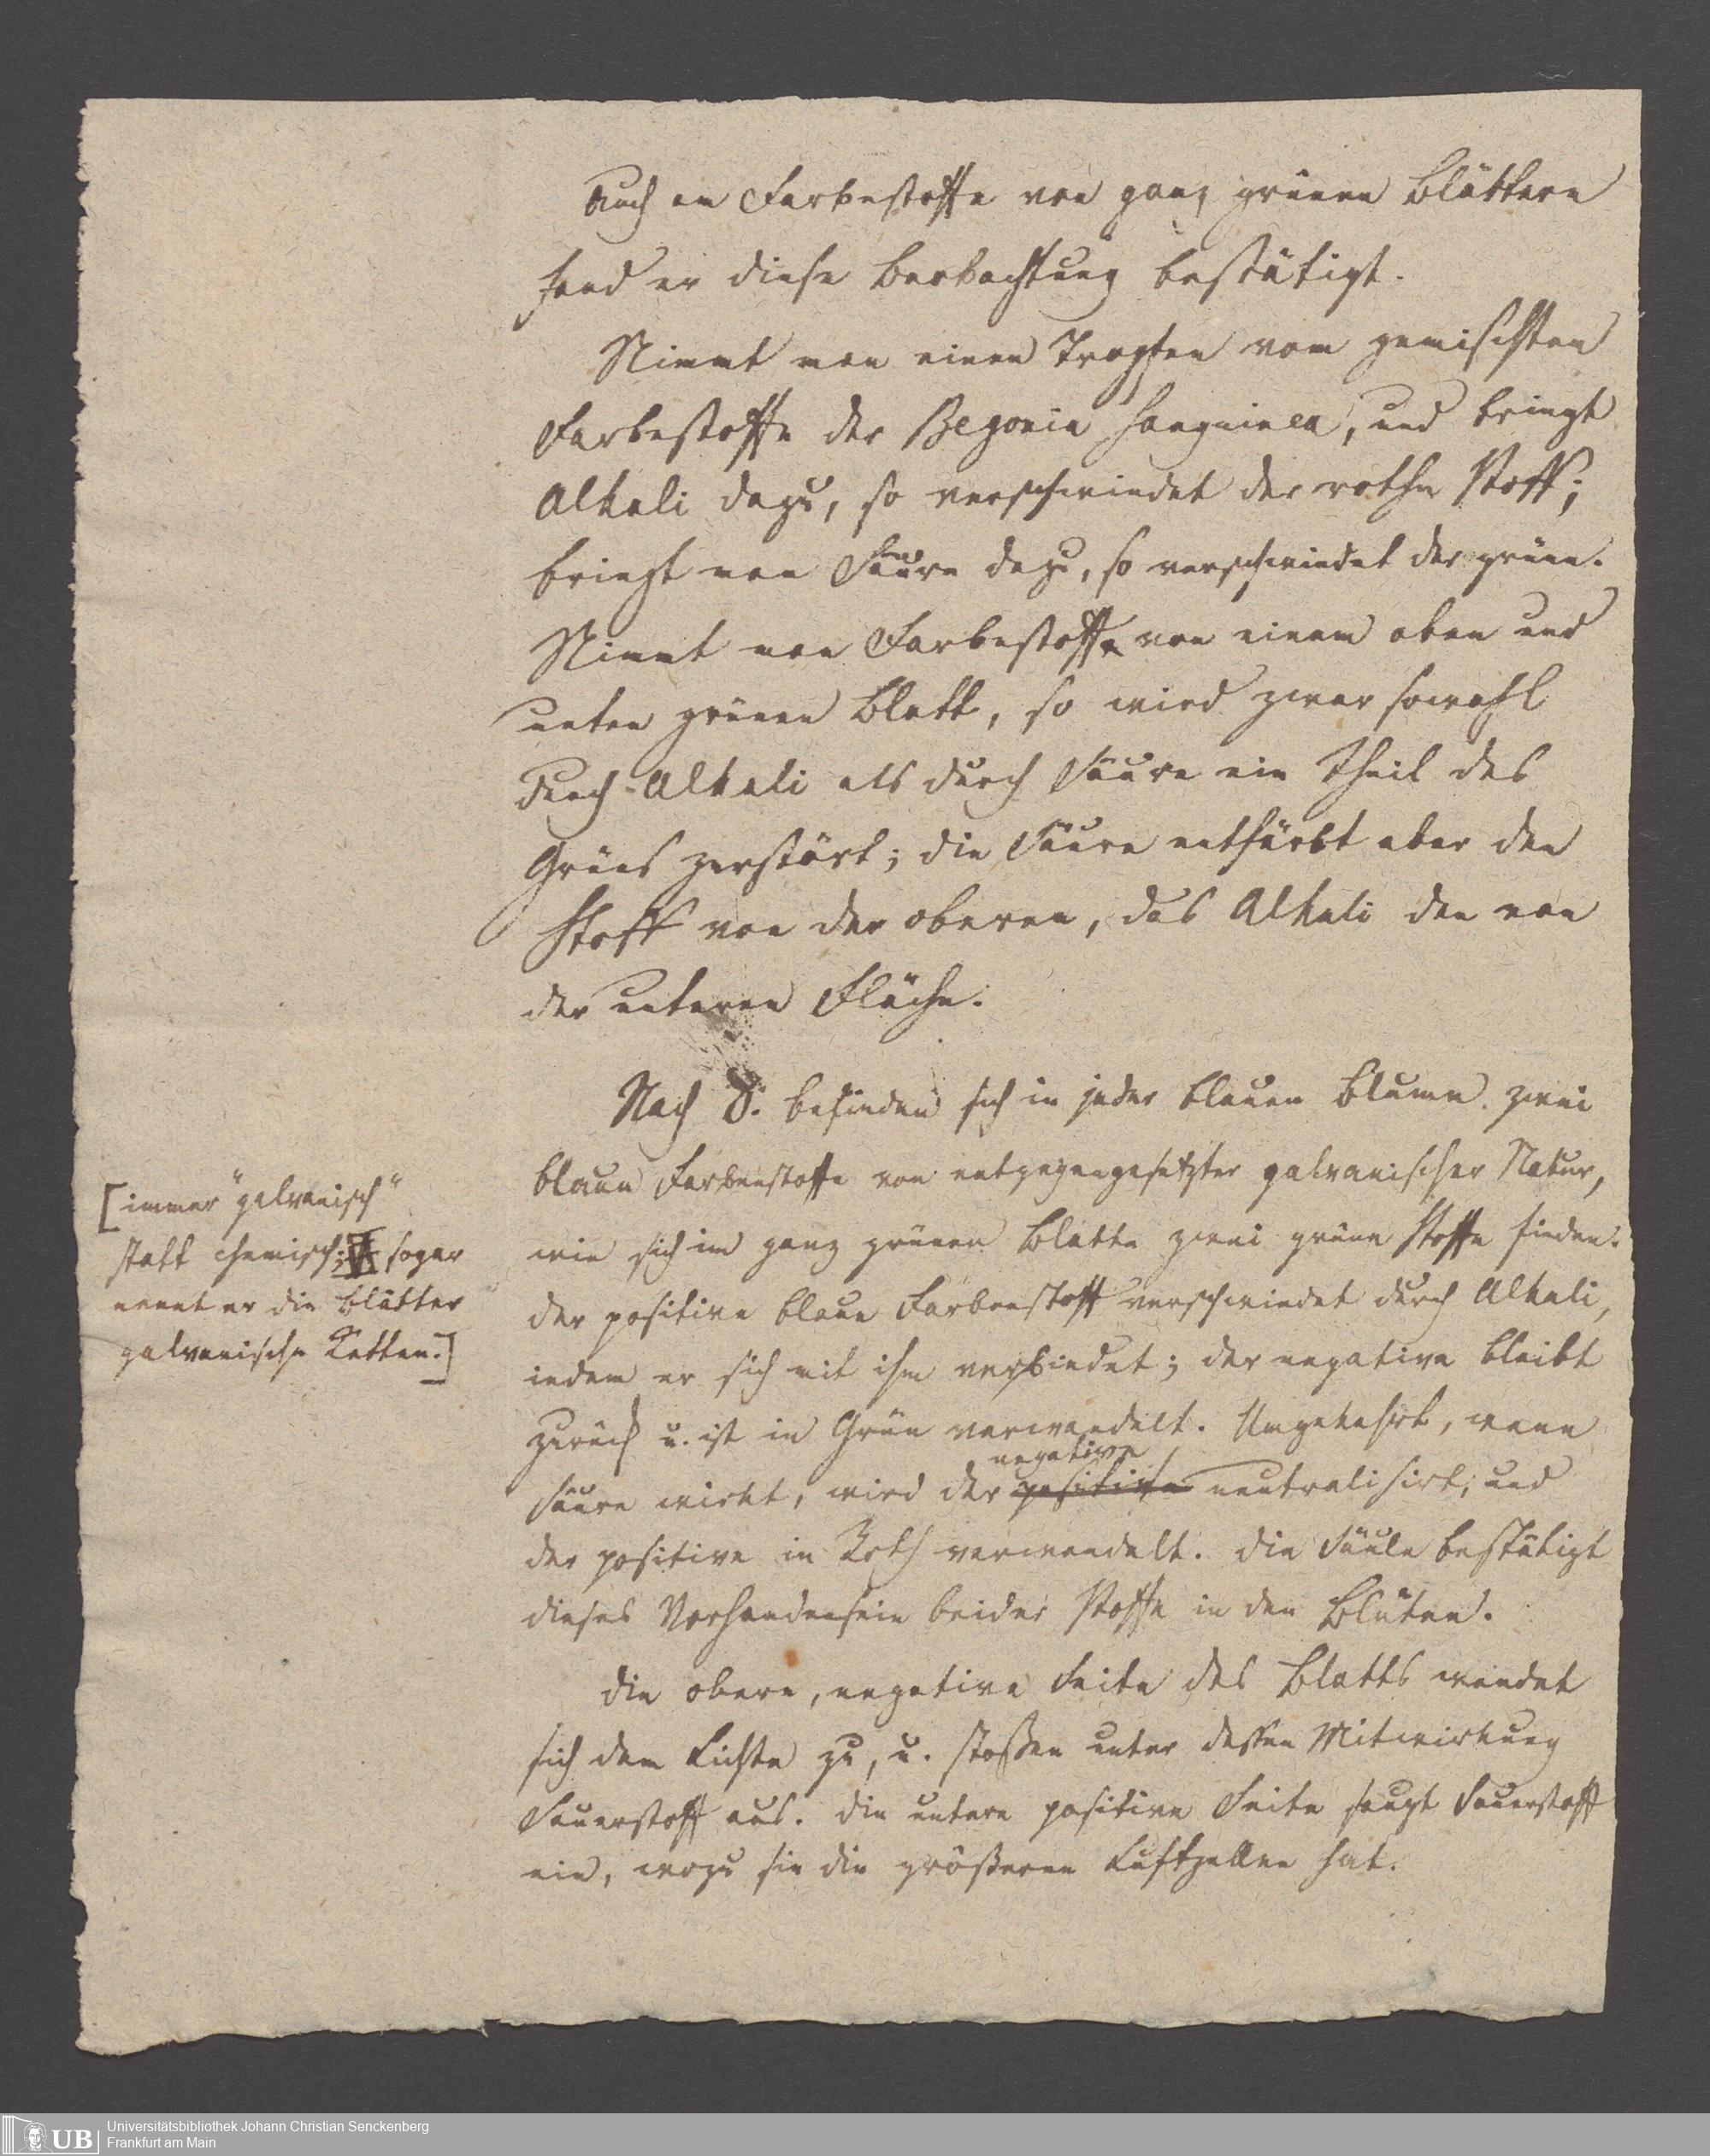 Auch am Farbestoffe von ganz grünen Blättern
fand er diese Beobachtung bestätigt.
Nimmt man einen Tropfen vom gemischten
Farbestoffe der Begonia sanguinea, und bringt
Alkali dazu, so verschwindet der rothe Stoff;
bringt man Säure dazu, so verschwindet der grüne.
Nimmt man Farbestoffe von einem oben und
unten grünen Blatt, so wird zwar sowohl
durch Alkali als durch Säure ein Theil des
Grüns zerstört; die Säure entfärbt aber den
Stoff von der oberen, das Alkali den von
der unteren Fläche.
Nach D. befinden sich in jeder blauen Blume zwei
blaue Farbenstoffe von entgegengesetzter galvanischer Natur,
wie sich im ganz grünen Blatte zwei grüne Stoffe finden.
der positive blaue Farbenstoff verschwindet durch Alkali,
indem er sich mit ihm verbindet; der negative bleibt
zurück u. ist in Grün verwandelt. Umgekehrt, wenn
negative
Säure wirkt, wird der positive neutralisirt, und
der positive in Roth verwandelt. die Säule bestätigt
dieses Vorhandensein beider Stoffe in den Blüten.
die obere, negative Seite des Blatts wendet
sich dem Lichte zu, u. stoßen unter dessen Mitwirkung
Sauerstoff aus. die untere positive Seite saugt Sauerstoff
ein, wozu sie die größeren Luftzellen hat.
[immer "galvanisch"
statt chemisch; sogar
nennt er die Blätter
galvanische Ketten.]
Universitätsbibliothek Johann Christian Senckenberg
Frankfurt am Main
UB